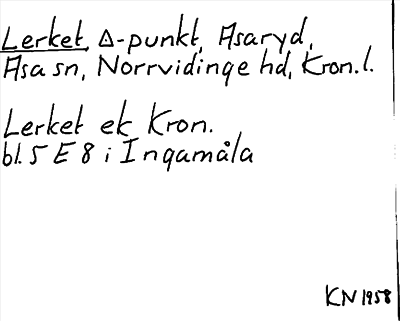 Lerket, Δ-punkt, Asaryd,
Asa sn, Norrvidinge hd, Kron.l.
Lerket ek Kron.
bl. 5 E 8 i Ingamåla
KN 1958